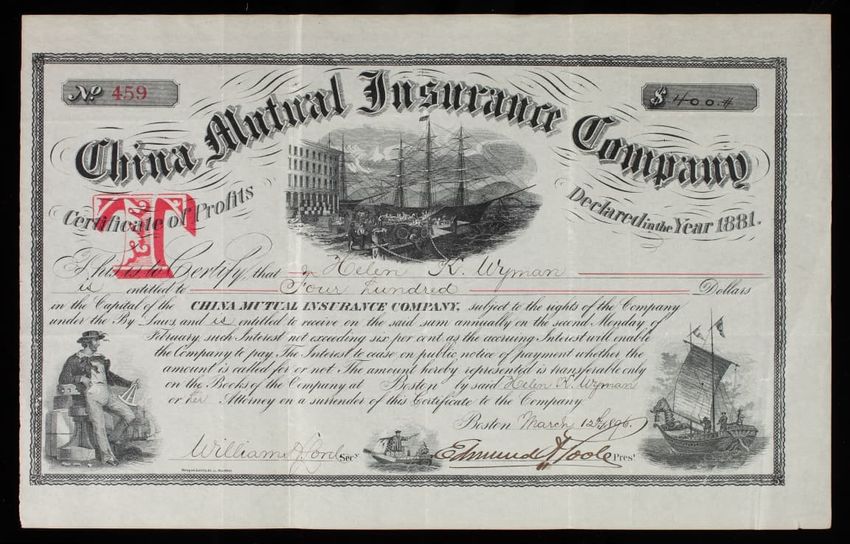 No 459
$ 400.#
China Mutual Insurance Company
T
Certificate of Profits
Declared in the Year 1881.
This is to Certify, that Helen K. Wyman
is entitled to Four hundred Dollars
in the Capital of the CHINA MUTUAL INSURANCE COMPANY, subject to the rights of the Company
under the By Laws, and is entitled to receive on the said sum annually on the second Monday of
February such Interest not exceeding six per cent as the accruing Interest will enable
the Company to pay. The Interest to cease on public notice of payment whether the
amount is called for or not. The amount hereby represented is transferable only
on the Books of the Company at Boston by said Helen K. Wyman
or her Attorney on a surrender of this Certificate to the Company.
Boston March 12th, 1896.
William Secy
Edmund Poole Prest